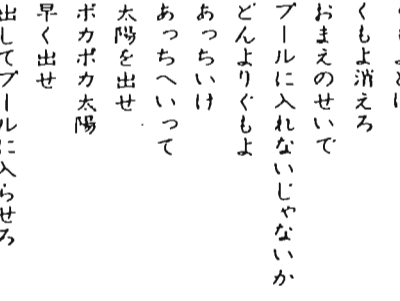 くもよ消えろ
おまえのせいで
プールに入れないじゃないか
どんよりぐもよ
あっちいけ
あっちへいって
太陽を出せ
ポカポカ太陽
早く出せ
出してプールに入らせろ